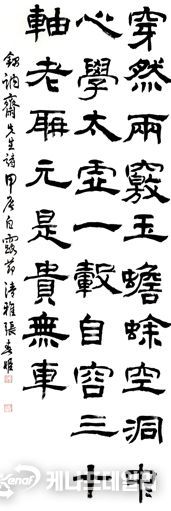 穿然兩竅玉蟾蜍空洞中
心學太虛一轂自容三十
軸老聃元是貴無車
先生詩甲辰白露節清雅張春姬
Kenaf 케나프데일리